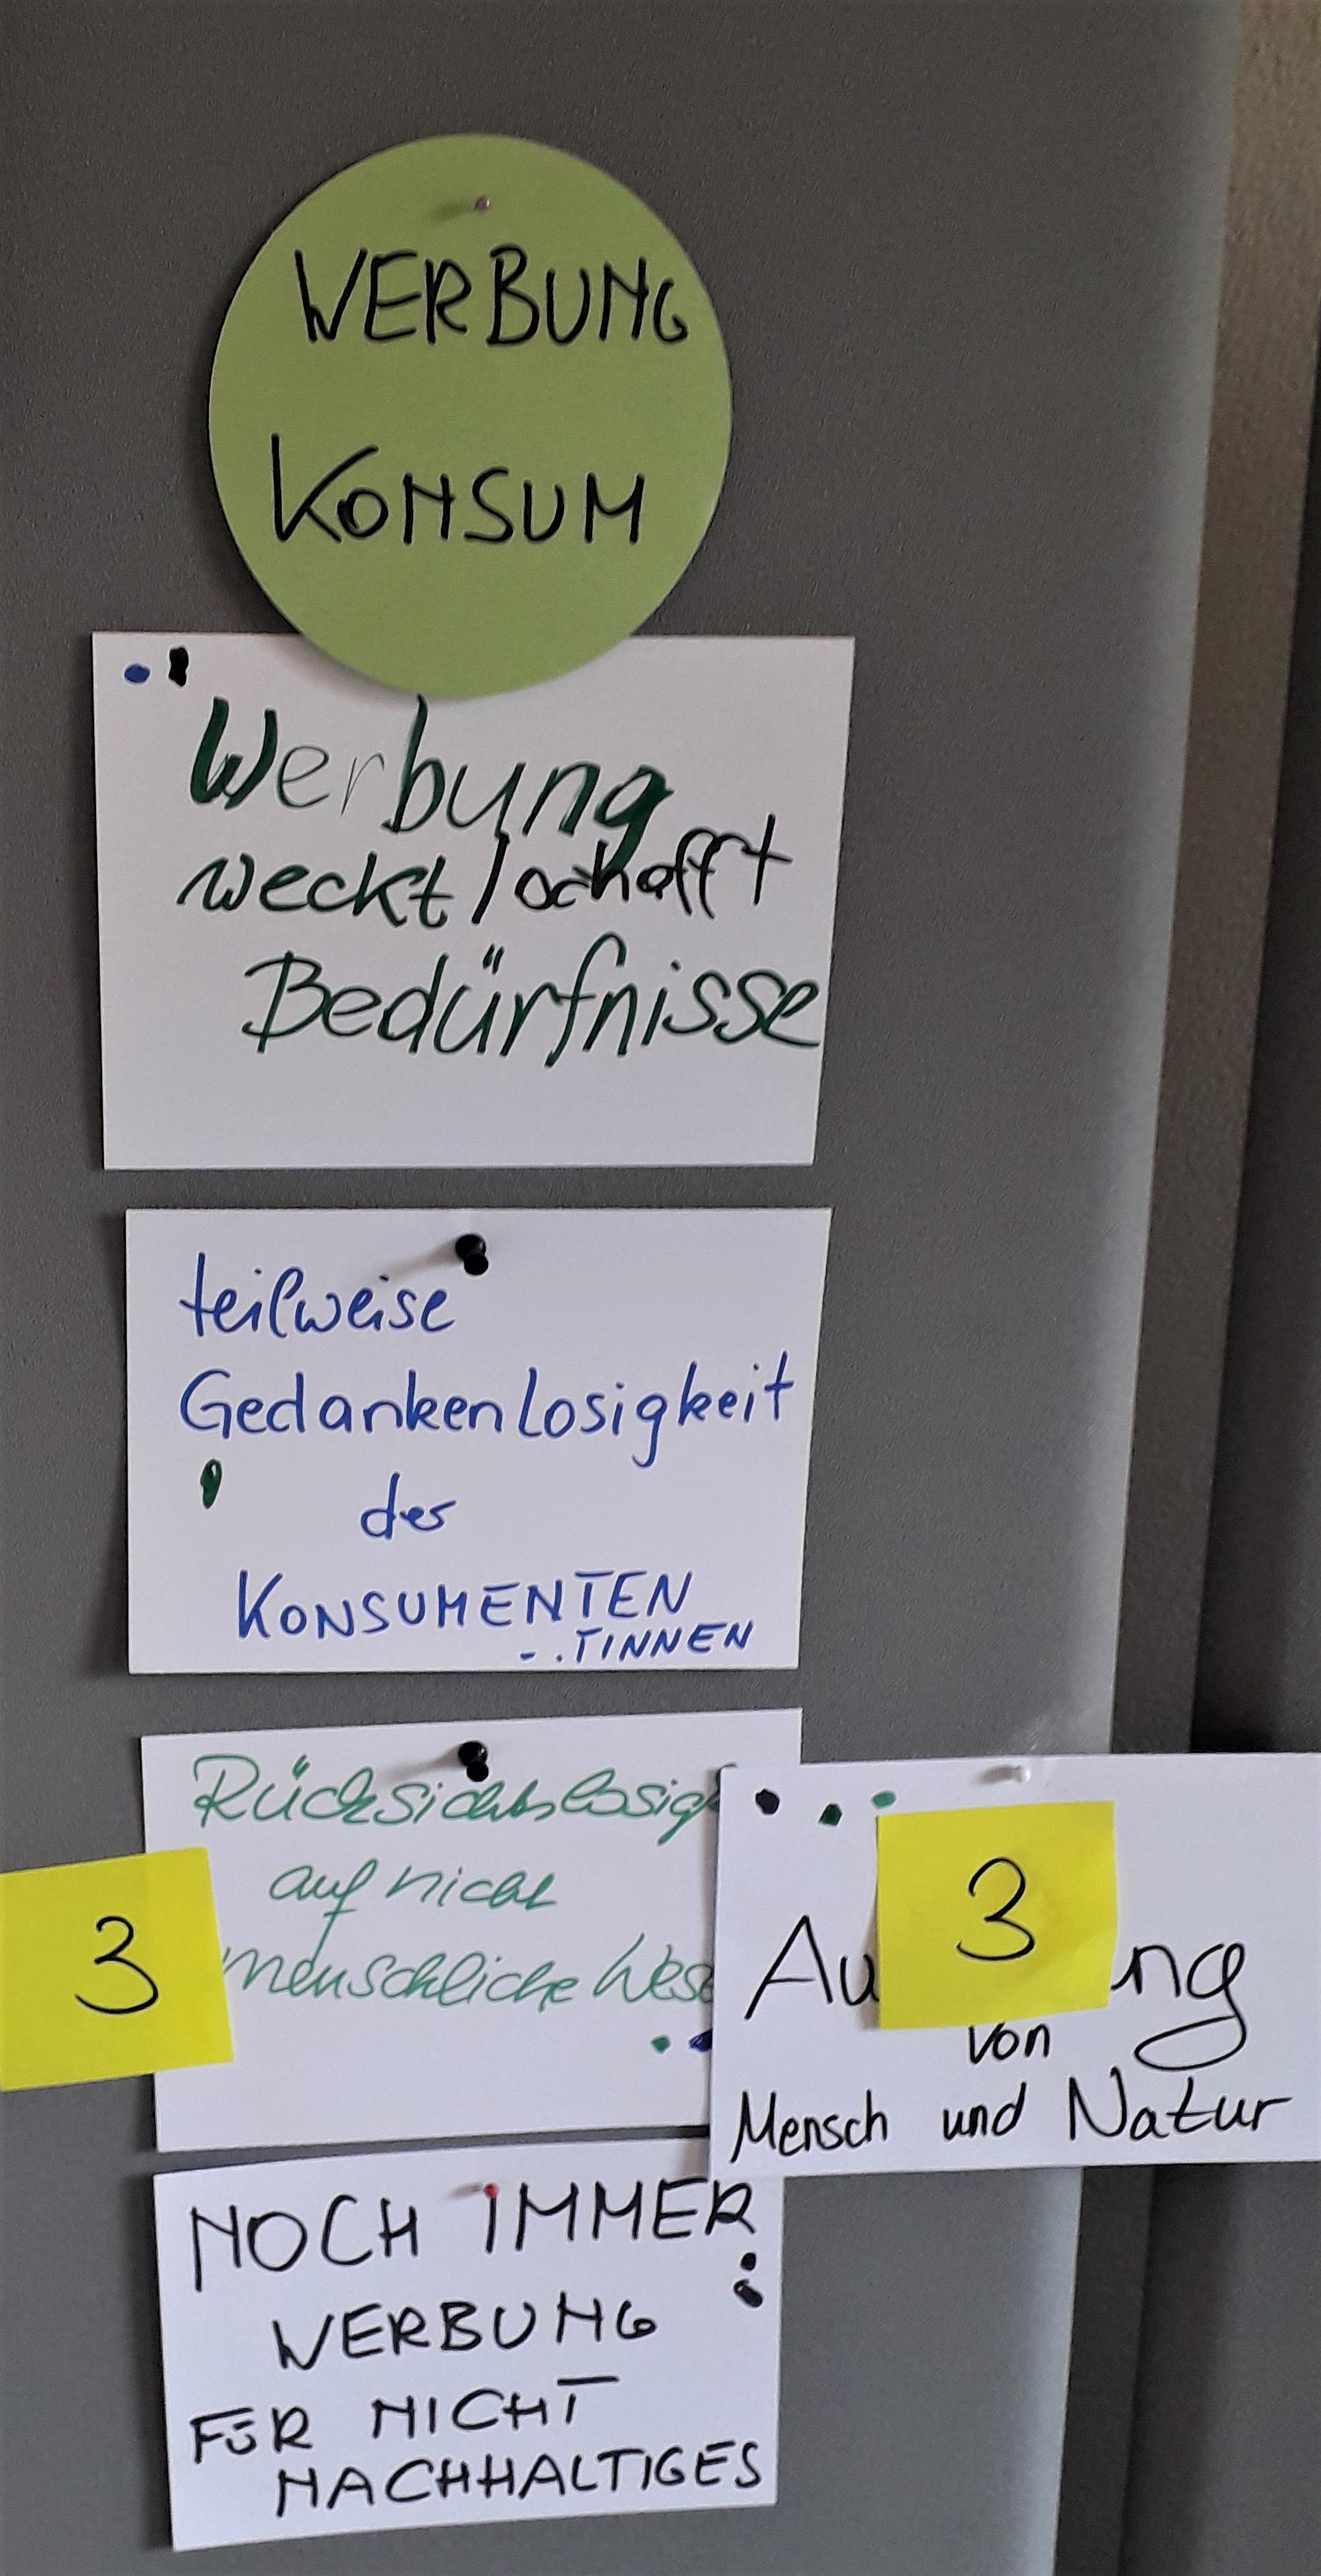 WERBUNG
KONSUM
Werbung
weckt/schafft
Bedürfnisse
teilweise
Gedankenlosigkeit
der
KONSUMENTEN
-..TINNEN
Rücksichtslosig
auf nicht
menschliche Wese
3
3
Au ng
von
Mensch und Natur
NOCH IMMER
WERBUNG
FÜR NICHT
NACHHALTIGES